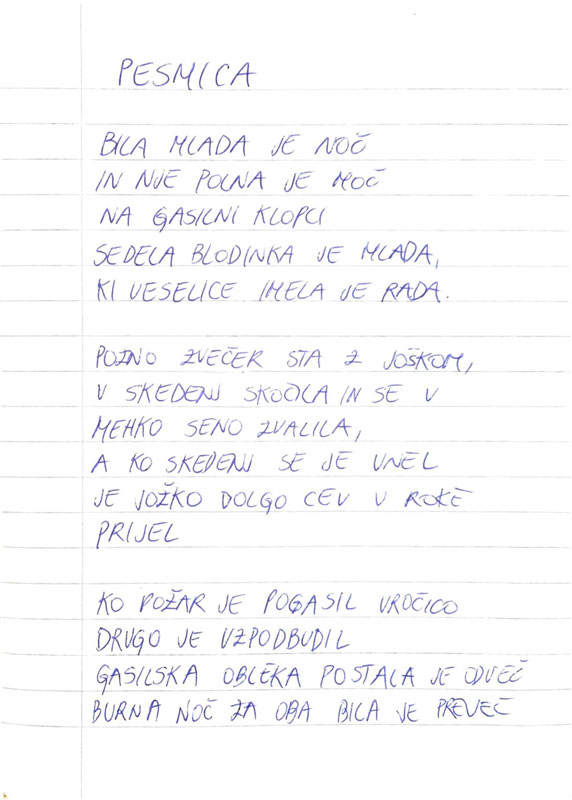 PESMICA
BILA MLADA JE NOČ
IN NJE POLNA JE MOČ
NA GASILNI KLOPCI
SEDELA BLODINKA JE MLADA,
KI VESELICE IMELA JE RADA.
POZNO ZVEČER STA Z JOŠKOM,
V SKEDENJ SKOČILA IN SE V
MEHKO SENO ZVALILA,
A KO SKEDENJ SE JE UNEL
JE JOŽKO DOLGO CEV V ROKE
PRIJEL
KO POŽAR JE POGASIL VROČICO
DRUGO JE VZPODBUDIL
GASILSKA OBLEKA POSTALA JE ODVEČ
BURNA NOČ ZA OBA BILA JE PREVEČ